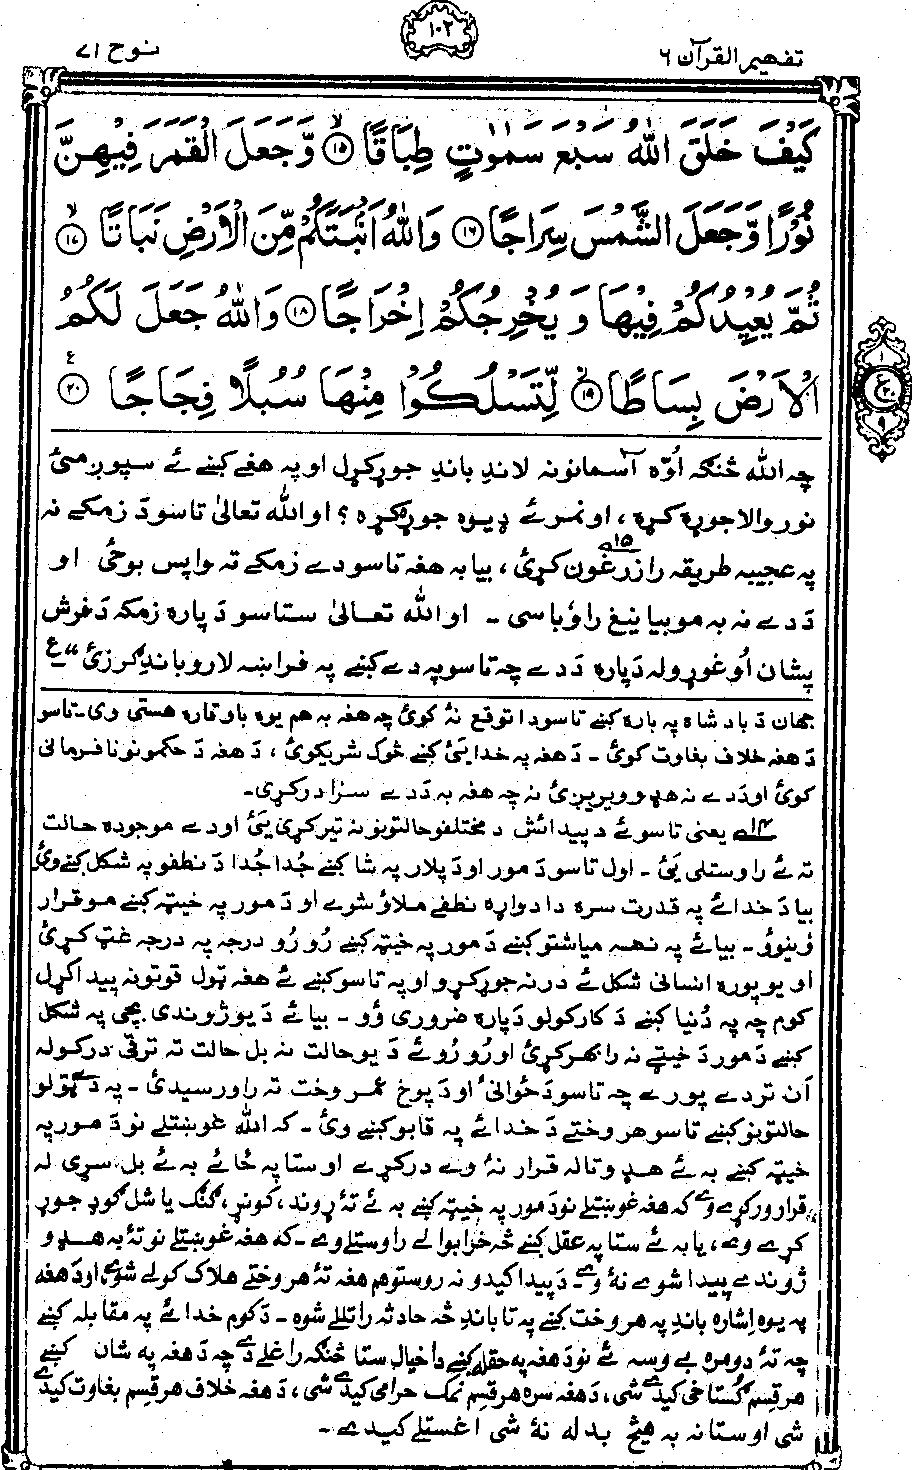 تفهیم القرآن ۶
۱۰۲
نوح ۷۱
كَيْفَ خَلَقَ اللّٰهُ سَبْعَ سَمٰوٰتٍ طِبَاقًا ﴿۱۵﴾ وَّجَعَلَ الْقَمَرَ فِيْهِنَّ
نُوْرًا وَّجَعَلَ الشَّمْسَ سِرَاجًا ﴿۱۶﴾ وَاللّٰهُ اَنْۢبَتَكُمْ مِّنَ الْاَرْضِ نَبَاتًا ﴿۱۷﴾
ثُمَّ يُعِيْدُكُمْ فِيْهَا وَيُخْرِجُكُمْ اِخْرَاجًا ﴿۱۸﴾ وَاللّٰهُ جَعَلَ لَكُمُ
الْاَرْضَ بِسَاطًا ﴿۱۹﴾ لِّتَسْلُكُوْا مِنْهَا سُبُلًا فِجَاجًا ﴿۲۰﴾
ع
۱
۲۰
۹
چه الله څنګه اُوّه آسمانونه لاندِ باندِ جوړکړل اوپه هغے کښے ئے سپوږمئ
نور والا جوړه کړه، او نمر ئے ډیوه جوړ کړه؟ او الله تعالیٰ تاسو دَ زمکے نه
په عجیبه طریقه را زرغون کړئ،۱۵ بیا به هغه تاسو دے زمکے ته واپس بوځی او
دَ دے نه به مو بیا نیغ راوُباسی ۔ او الله تعالیٰ ستاسو دَپاره زمکه دَ فرش
پشان اُوغوړوله دَپاره دَ دے چه تاسو په دے کښے په فراخه لارو باندِ ګرزئ“ ع
جهان دَ بادشاه په باره کښے تاسو دا توقع نهٔ کوئ چه هغه به هم یوه باوقاره هستی وی۔ تاسو
دَ هغه خلاف بغاوت کوئ ۔ دَ هغه په خدایئ کښے څوک شریکوئ، دَ هغه دَ حکمونو نافرمانی
کوئ او دَ دے نه هډو ویریږئ نه چه هغه به دَ دے سزا درکړی۔
۱۴ یعنی تاسو ئے د پیدائش د مختلفو حالتونو نه تیر کړی یئ او دے موجوده حالت
ته ئے راوستلی یئ ۔ اول تاسو دَ مور او دَ پلار په شا کښے جُدا جُدا دَ نطفو په شکل کښے وئ
بیا دَ خدائے په قدرت سره دا دواړه نطفے ملاؤ شوے او دَ مور په خیټه کښے مو قرار
وُنیوو ۔ بیا ئے په نهه میاشتو کښے دَ مور په خیټه کښے رُو رُو درجه په درجه غټ کړئ
او یو پوره انسانی شکل ئے درنه جوړ کړو او په تاسو کښے ئے هغه ټول قوتونه پیدا کړل
کوم چه په دُنیا کښے دَ کار کولو دَپاره ضروری وُو ۔ بیا ئے دَ یو ژوندی بچی په شکل
کښے دَ مور دَ خیټے نه را بهر کړئ او رُو رُو ئے دَ یو حالت نه بل حالت ته ترقی درکوله
اَن تر دے پورے چه تاسو دَ ځوانئ او دَ پوخ عمر وخت ته راورسیدئ ۔ په دے ټولو
حالتونو کښے تاسو هر وختے دَ خدائے په قابو کښے وئ ۔ که الله غوښتلے نو دَ مور په
خیټه کښے به ئے هډو تا له قرار نهٔ وے درکړے او ستا په ځائے به ئے بل سړی له
قرار ورکړے وے که هغه غوښتلے نو دَ مور په خیټه کښے به ئے تهٔ ړوند، کوڼ، ګنګ یا شل ګوډ جوړ
کړے وے، یا به ئے ستا په عقل کښے څه خرابوالے راوستلے وے ۔ که هغه غوښتلے نو تهٔ به هډو
ژوندے پیدا شوے نهٔ وے ۔ دَ پیدا کیدو نه روستو هم هغه تهٔ هر وختے هلاک کولے شوے او دَ هغه
په یوه اِشاره باندِ په هر وخت کښے په تا باندِ څه حادثه راتللے شوه ۔ دَ کوم خدائے په مقابله کښے
چه تهٔ دومره بے وسه ئے نو دَ هغه په حقله کښے دا خیال ستا څنګه راغلے دے چه دَ هغه په شان کښے
هر قِسم ګُستاخی کیدے شی، دَ هغه سره هر قِسم نمک حرامی کیدے شی، دَ هغه خلاف هر قِسم بغاوت کیدے
شی او ستا نه به هیڅ بدله نهٔ شی اغستلے کیدے ۔